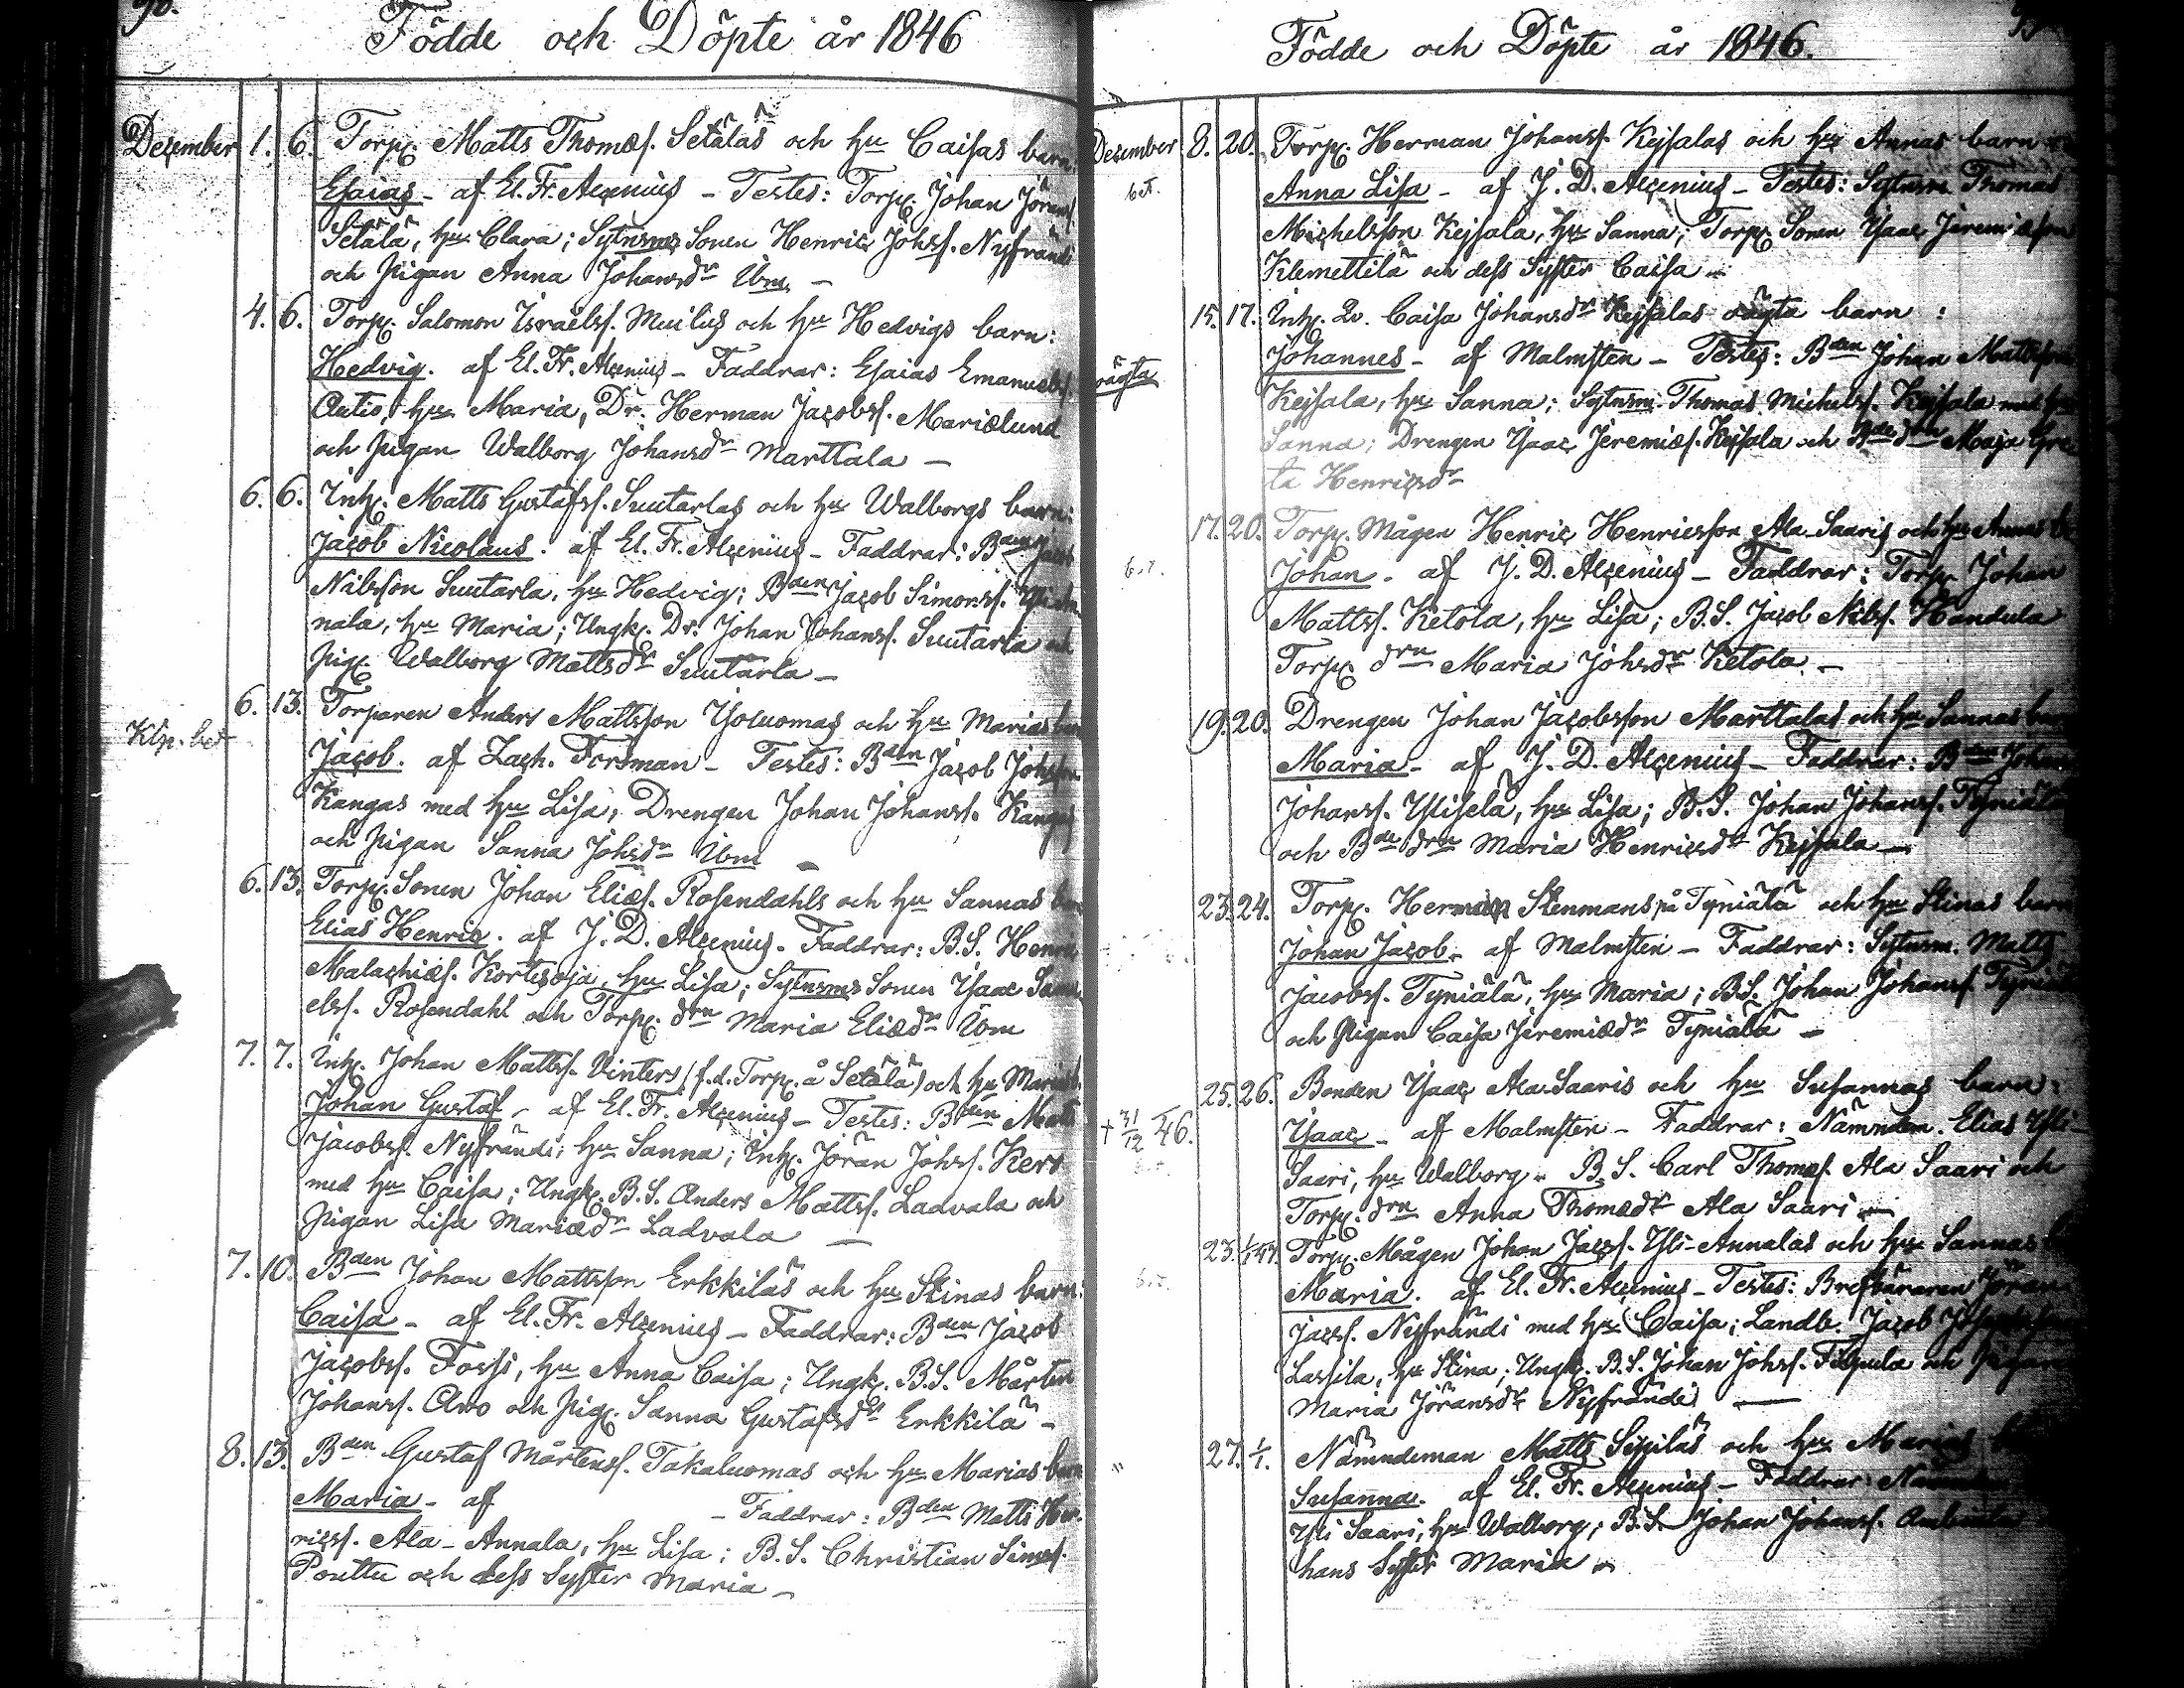 90.
Födde och Döpte år 1846
December 1. 6. Torp. Matts Thomæs. Setäläs och hu Caisas barn
Esaias - af El. Fr. Alcenius - Testes: Torp. Johan Jöranss.
Setälä, hu Clara; Sytnsms Sonen Henric Johss. Nyfrändi
och Pigan Anna Johansdr Ibm. -
4. 6. Torp. Salomon Israelss. Muilus och hu Hedvigs barn:
Hedvig. af El. Fr. Alcenius - Faddrar: Esaias Emanuelss.
Autio, hu Maria, Dr. Herman Jacobss. Marielund
och Pigan Walborg Johansdr Marttala -
6. 6. Inh. Matts Gustafss. Suutarlas och hu Walborgs barn:
Jacob Nicolaus. af El. Fr. Alcenius - Faddrar: Bden
Nilsson Suutarla, hu Hedvig; Bden Jacob Simonss.
nala, hu Maria; Ungk. Dr. Johan Johanss. Suutarla och
Pig. Walborg Mattsdr Suutarla -
6. 13. Torparen Anders Mattsson Yoluomas och hu Marias barn
Klp. bet
Jacob. af Zach. Forsman - Testes: Bden Jacob Johsson
Kangas med hu Lisa; Drengen Johan Johanss. Kangas
och Pigan Sanna Johsdr Ibm -
6. 13. Torp. Sonen Johan Eliæs. Rosendahls och hu Sannas barn
Elias Henric. af J. D. Alcenius. Faddrar: B.S. Henric
Malachiæs. Kortesoja, hu Lisa; Sytnsms Sonen Ysaac Samu
elss. Rosendahl och Torp. drn Maria Eliædr Ibm
7. 7. Inh. Johan Mattss. Vinters (f.d. Torp. å Setälä) och hu Marias b.
Johan Gustaf - af El. Fr. Alcenius - Testes: Bden Matts
Jacobss. Nyfrändi, hu Sanna; Inh. Jöran Johss. Kero
med hu Caisa; Ungk. B.S. Anders Mattss. Ladvala och
Pigan Lisa Mariædr Ladvala -
7. 10. Bden Johan Mattsson Erkkiläs och hu Stinas barn:
Caisa - af El. Fr. Alcenius - Faddrar: Bden Jacob
Jacobss. Forssi, hu Anna Caisa; Ungk. B.S. Mårten
Johanss. Aro och Pig. Sanna Gustafsdr Erkkilä -
8. 13. Bden Gustaf Mårtenss. Takaluomas och hu Marias barn
Maria - af - Faddrar: Bden Matts Hen
ricss. Ala-Annala, hu Lisa; B.S. Christian Simss.
Pouttu och dess Syster Maria -
Födde och Döpte år 1846.
December 8. 20. Torp. Herman Johanss. Keisalas och hu Annas barn
Anna Lisa - af J. D. Alcenius - Testes: Sytnsm. Thomas
Michelsson Keisala, hu Sanna; Torp. Sonen Ysaac Jeremiæson
Klemettilä och dess Syster Caisa -
15. 17. Inh. Qv. Caisa Johansdr Keisalas oägta barn :
oägta
Johannes - af Malmsten - Testes: Bden Johan Mattsson
Keisala, hu Sanna; Sytnsm. Thomas Michelss. Keisala med hu
Sanna; Drengen Ysaac Jeremiæs. Keisala och Bde drn Maja Gre
ta Henricsdr
17. 20. Torp. Mågen Henric Henricsson Ala-Saaris och hu Annas b.
Johan. af J. D. Alcenius - Faddrar: Torp. Johan
Mattss. Ketola, hu Lisa; B.S. Jacob Nilss. Handula
Torp. drn Maria Johsdr Ketola. -
19. 20. Drengen Johan Jacobsson Marttalas och hu Sannas barn
Maria - af J. D. Alcenius - Faddrar: Bden Johan
Johanss. Yliselä, hu Lisa; B.S. Johan Johanss. Tyniälä
och Bde drn Maria Henricsdr Keisala -
23. 24. Torp. Herman Stenmans på Tyniälä och hu Stinas barn
Johan Jacob - af Malmsten - Faddrar: Sytnsm. Matts
Jacobss. Tyniälä, hu Maria; B.S. Johan Johanss. Tyniälä
och Pigan Caisa Jeremiædr Tyniälä -
25. 26. Bonden Ysaac Ala-Saaris och hu Susannas barn:
† 31/12 46.
Ysaac - af Malmsten - Faddrar: Nämndem. Elias Yli-
Saari, hu Walborg. B.S. Carl Thomæs. Ala Saari och
Torp. drn Anna Thomædr Ala Saari -
23. 1/1 47. Torp. Mågen Johan Jacss. Yli-Annalas och hu Sannas
Maria. af El. Fr. Alcenius - Testes: Brefbäraren Jöran
Jacss. Nyfrändi med hu Caisa; Landb. Jacob
Lassila, hu Stina; Ungk. B.S. Johan Johss. Filpula och Pigan
Maria Jöransdr Nyfrändi -
27. 1/1. Nämndeman Matts Sipiläs och hu Marias
Susanna. af El. Fr. Alcenius - Faddrar:
Yli Saari, hu Walborg; B.S. Johan Johanss.
hans Syster Maria -